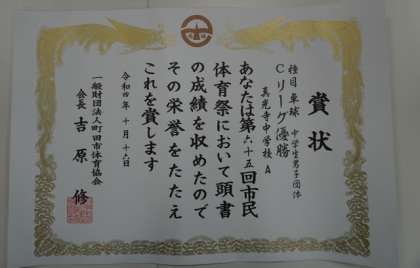 賞状
種目 卓球 中学生男子団体
Cリーグ優勝
真光寺中学校 A
あなたは第六十五回市民
体育祭において頭書
の成績を収めたので
その栄誉をたたえ
これを賞します
令和四年 十月 十六日
一般財団法人町田市体育協会
会長 吉原 修